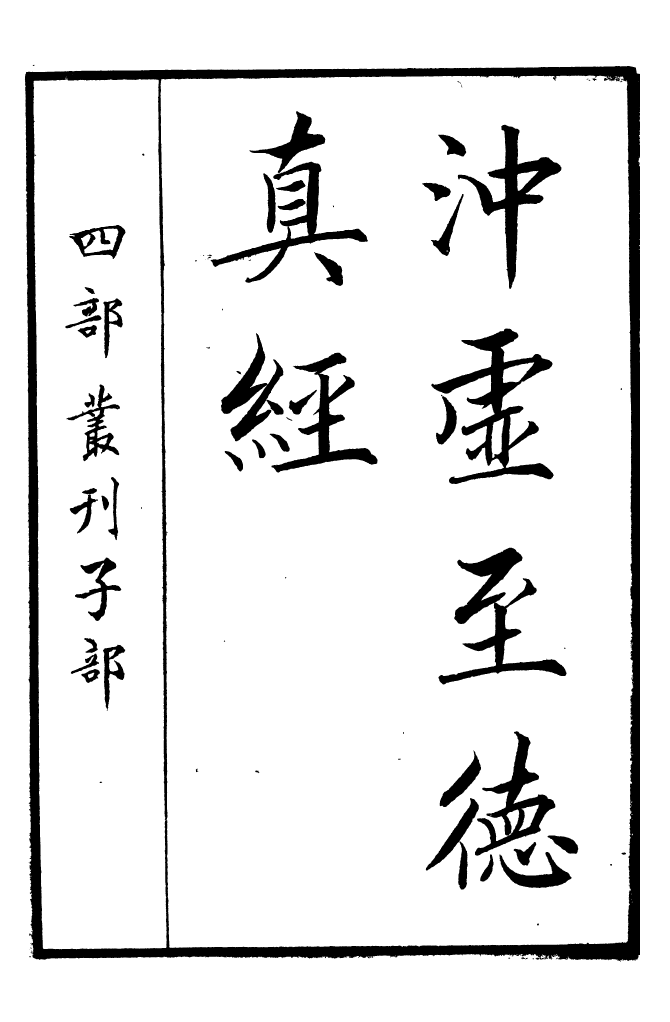 沖虛至德
真經
四部叢刊子部